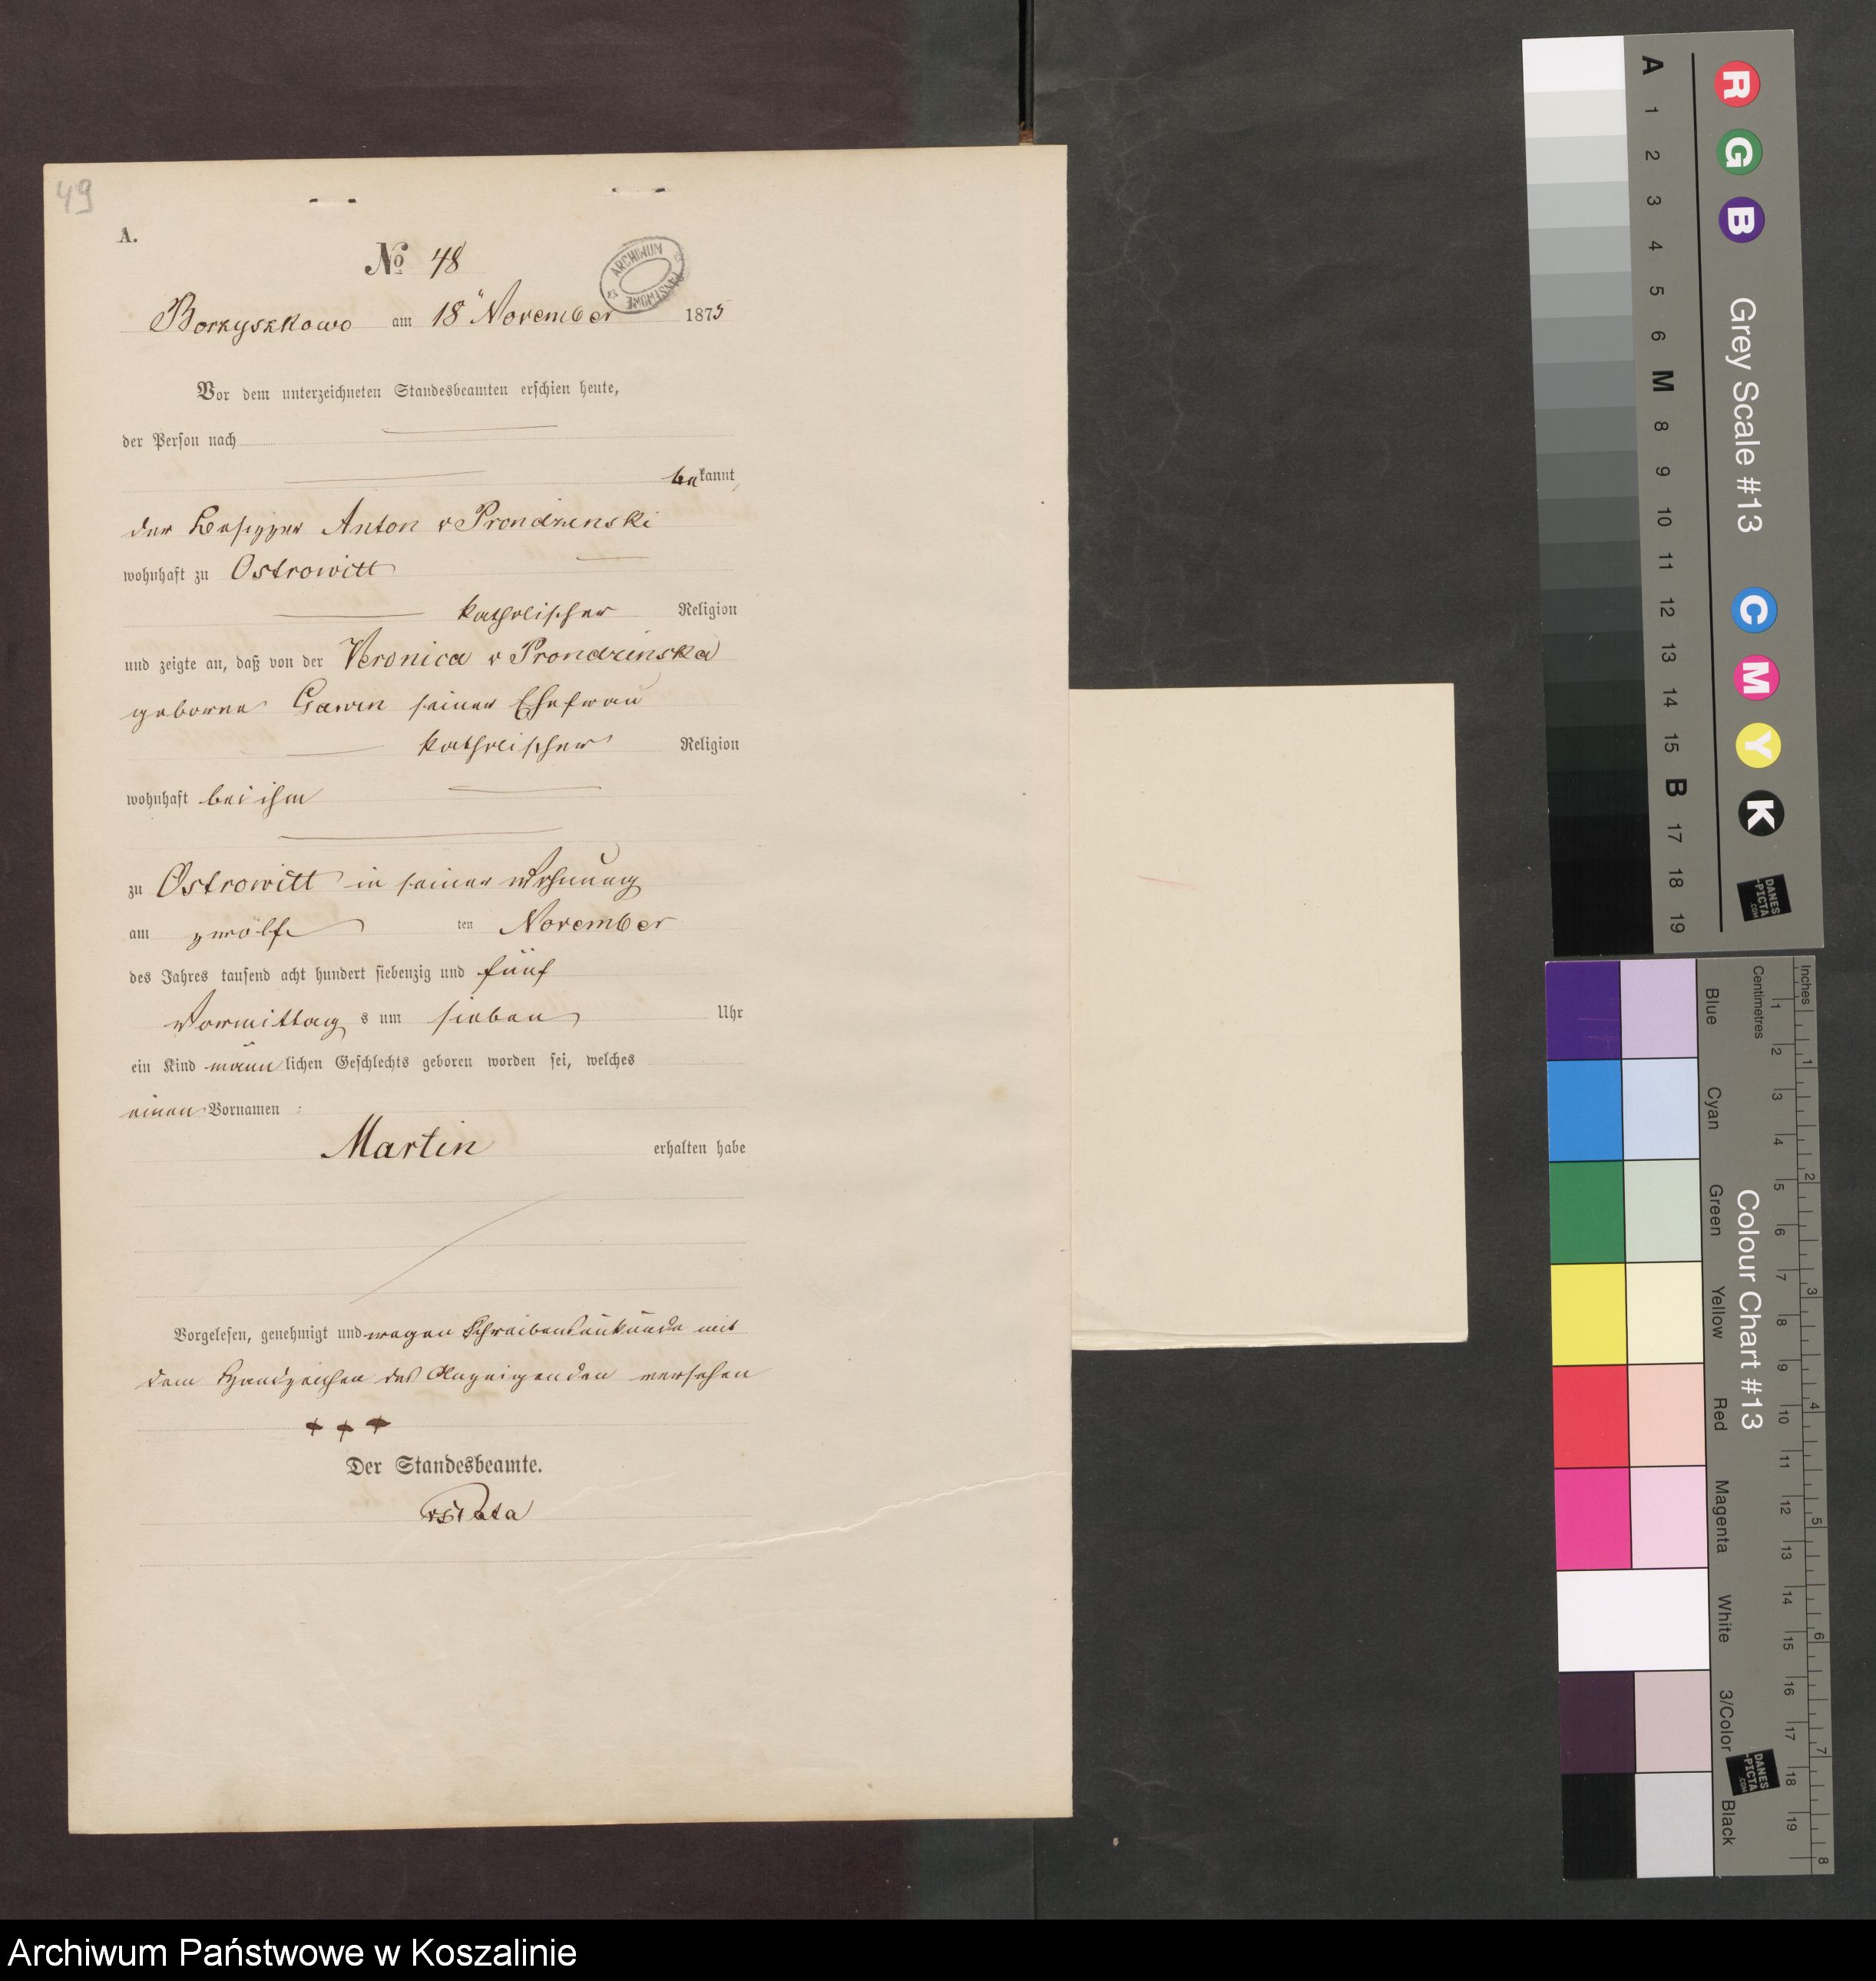 49
A.
No 48
ARCHIWUM PAŃSTWOWE
Borzyszkowo am 18" November 1875
Vor dem unterzeichneten Standesbeamten erschien heute,
der Person nach
bekannt,
der Besitzer Anton v Prondzinski
wohnhaft zu Ostrowitt
katholischer Religion
und zeigte an, daß von der Veronica v Prondzinska
geborne Gawin seiner Ehefrau
katholischer Religion
wohnhaft bei ihm
zu Ostrowitt in seiner Wohnung
am zwölften November
des Jahres tausend acht hundert siebenzig und fünf
Vormittags um sieben Uhr
ein Kind männlichen Geschlechts geboren worden sei, welches
einen Vornamen
Martin erhalten habe
Vorgelesen, genehmigt und wegen Schreibensunkunde mit
dem Handzeichen des Anzeigenden versehen
+ + +
Der Standesbeamte.
A 1 2 3 4 5 6 M 8 9 10 11 12 13 14 15 B 17 18 19
R G B
Grey Scale #13
C M Y K
DANES-PICTA.COM
Inches 1 2 3 4 5 6 7 8
Centimetres 1 2 3 4 5 6 7 8 9 10 11 12 13 14 15 16 17 18 19
Colour Chart #13
Blue Cyan Green Yellow Red Magenta White 3/Color Black
DANES-PICTA.COM
Archiwum Państwowe w Koszalinie